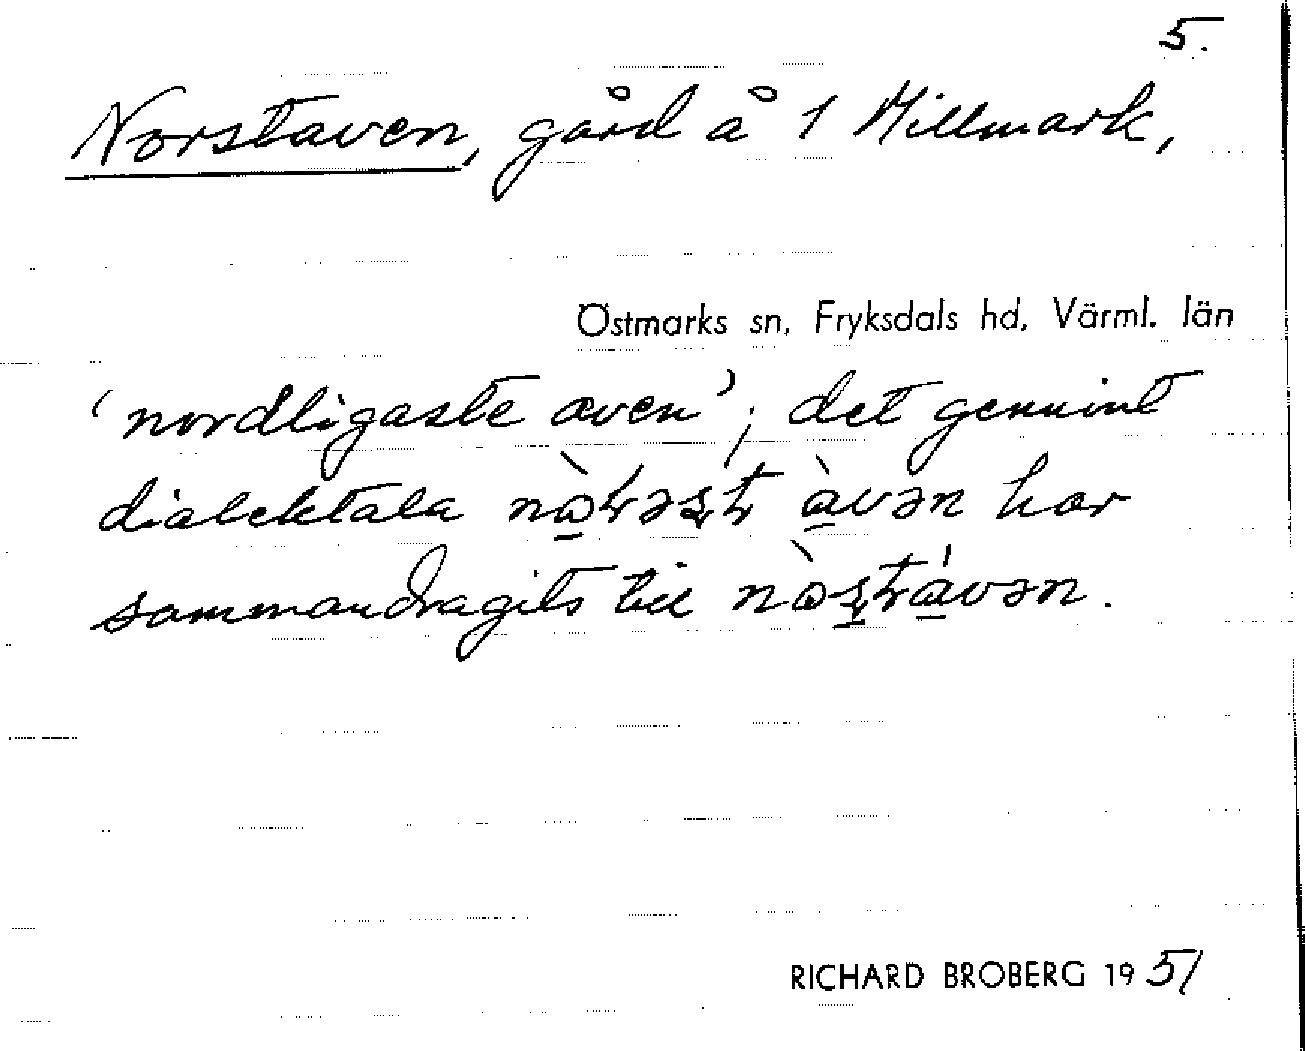 5.
Norstaven, gård å 1 Millmark,
Östmarks sn, Fryksdals hd, Värml. län
'nordligaste aven'; det genuint
dialektala àvən har
sammandragits till
RICHARD BROBERG 1951